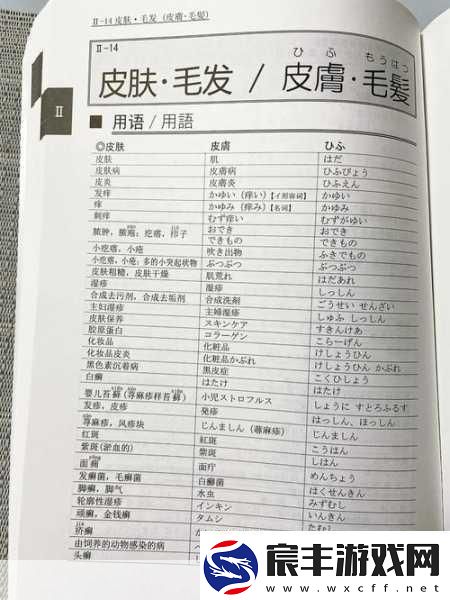 II-14 皮肤・毛发（皮膚・毛髪）
II-14
ひ ふ もうはつ
皮肤·毛发 / 皮膚・毛髪
II
■ 用语 / 用語
◎皮肤 皮膚 ひふ
皮肤 肌 はだ
皮肤病 皮膚病 ひふびょう
皮炎 皮膚炎 ひふえん
发痒 かゆい（痒い）【イ形容詞】 かゆい
痒 かゆみ（痒み）【名詞】 かゆみ
刺痒 むず痒い むずがゆい
おでき おでき
脓肿，脓疱；疙瘩，疖子 できもの できもの
小疙瘩，小疮 吹き出物 ふきでもの
小疙瘩，小疮；多的小突起状物 ぶつぶつ ぶつぶつ
皮肤粗糙，皮肤干燥 肌荒れ はだあれ
湿疹 湿疹 しっしん
合成去污剂，合成去垢剂 合成洗剤 ごうせい せんざい
主妇湿疹 主婦湿疹 しゅふ しっしん
皮肤保养 スキンケア すきんけあ
胶原蛋白 コラーゲン こらーげん
化妆品 化粧品 けしょうひん
化妆品皮炎 化粧品かぶれ けしょうひん かぶれ
黑色素沉着病 黒皮症 こくひしょう
白癣 はたけ はたけ
婴儿苔藓（荨麻疹样苔藓） 小児ストロフルス しょうに すとろふるす
发疹，皮疹 発疹 はっしん、ほっしん
荨麻疹，风疹块 じんましん（蕁麻疹） じんましん
红斑 紅斑 こうはん
紫斑（淤血的） 紫斑 しはん
面疖 面疔 めんちょう
发癣菌，毛癣菌 白癬菌 はくせんきん
脚癣，脚气 水虫 みずむし
轮廓性湿疹 インキン いんきん
顽癣，金钱癣 タムシ たむし
疥癣
由饲养的动物感染的病
头癣
宸丰游戏网
www.wxcff.net